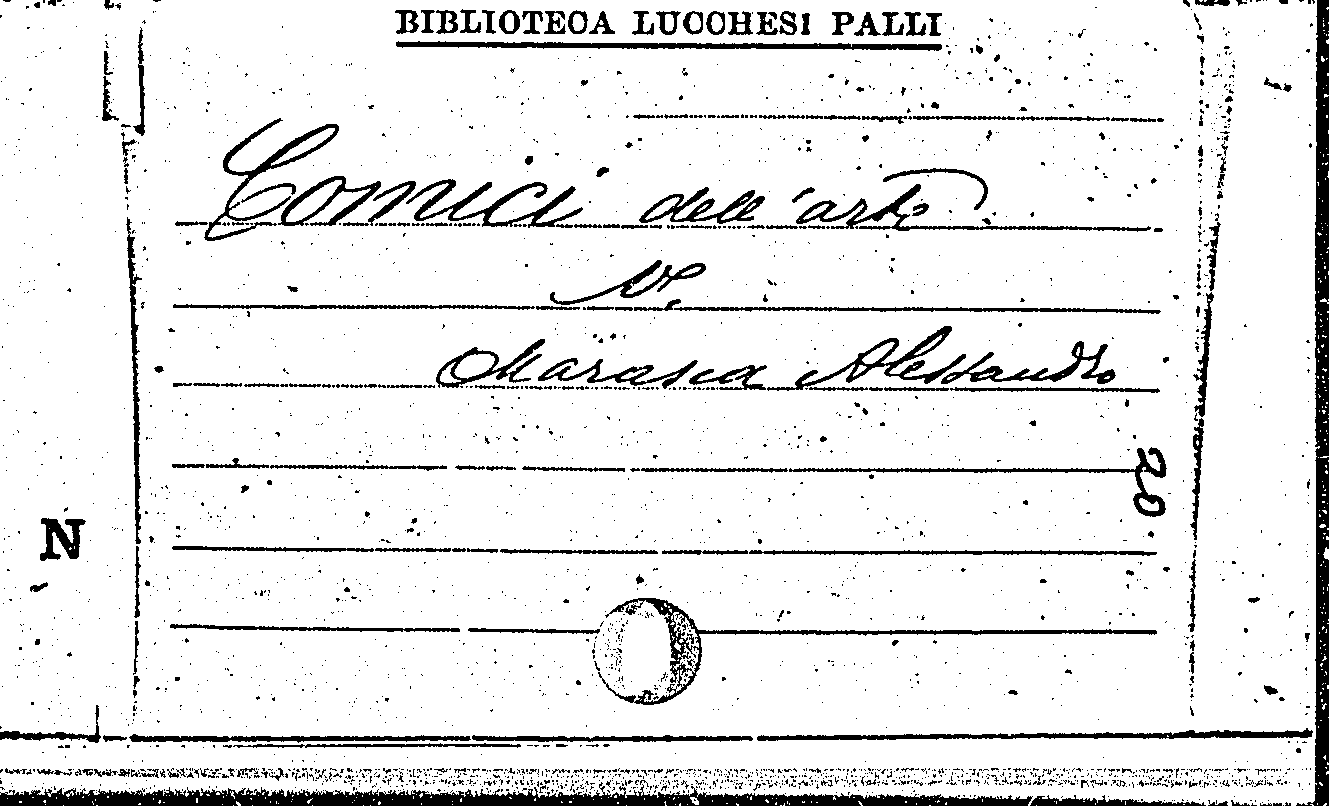 BIBLIOTECA LUCCHESI PALLI
Comici dell'arte
V.
Marasca Alessandro
20
N